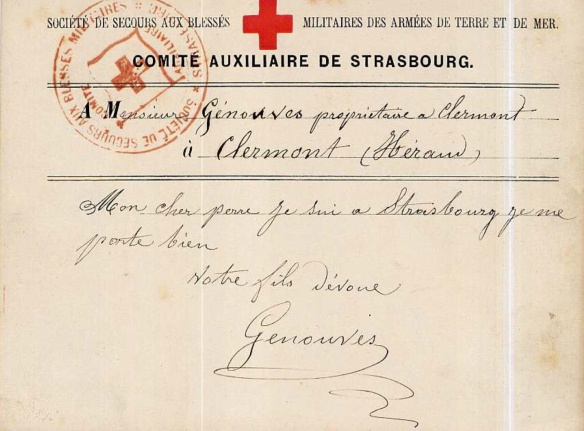 SOCIÉTÉ DE SECOURS AUX BLESSÉS MILITAIRES DES ARMÉES DE TERRE ET DE MER.
COMITÉ AUXILIAIRE DE STRASBOURG.
SOCIÉTÉ DE SECOURS AUX BLESSÉS MILITAIRES
COMITÉ AUXILIAIRE
A Monsieur Génouves propriétaire a Clermont
à Clermont (Héraud)
Mon cher perre je sui a Strasbourg je me
porte bien
Votre fils dévoue
Genouves